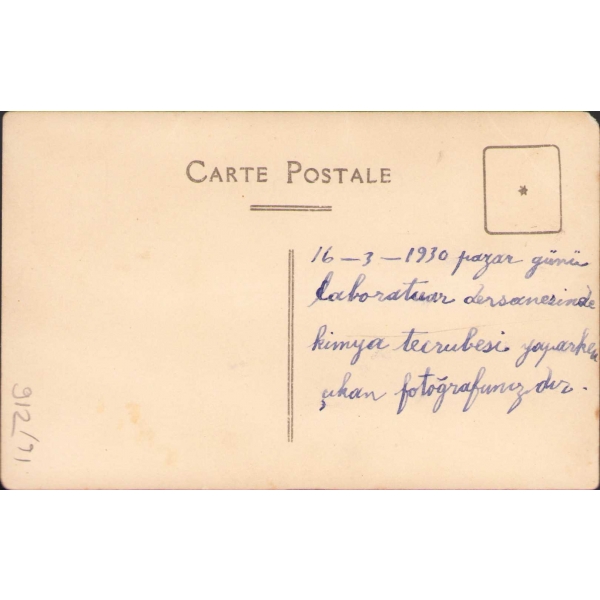 CARTE POSTALE
16 - 3 - 1930 pazar günü
laboratuar dersanesinde
kimya tecrubesi yaparken
çıkan fotoğrafımız dır.
912/71